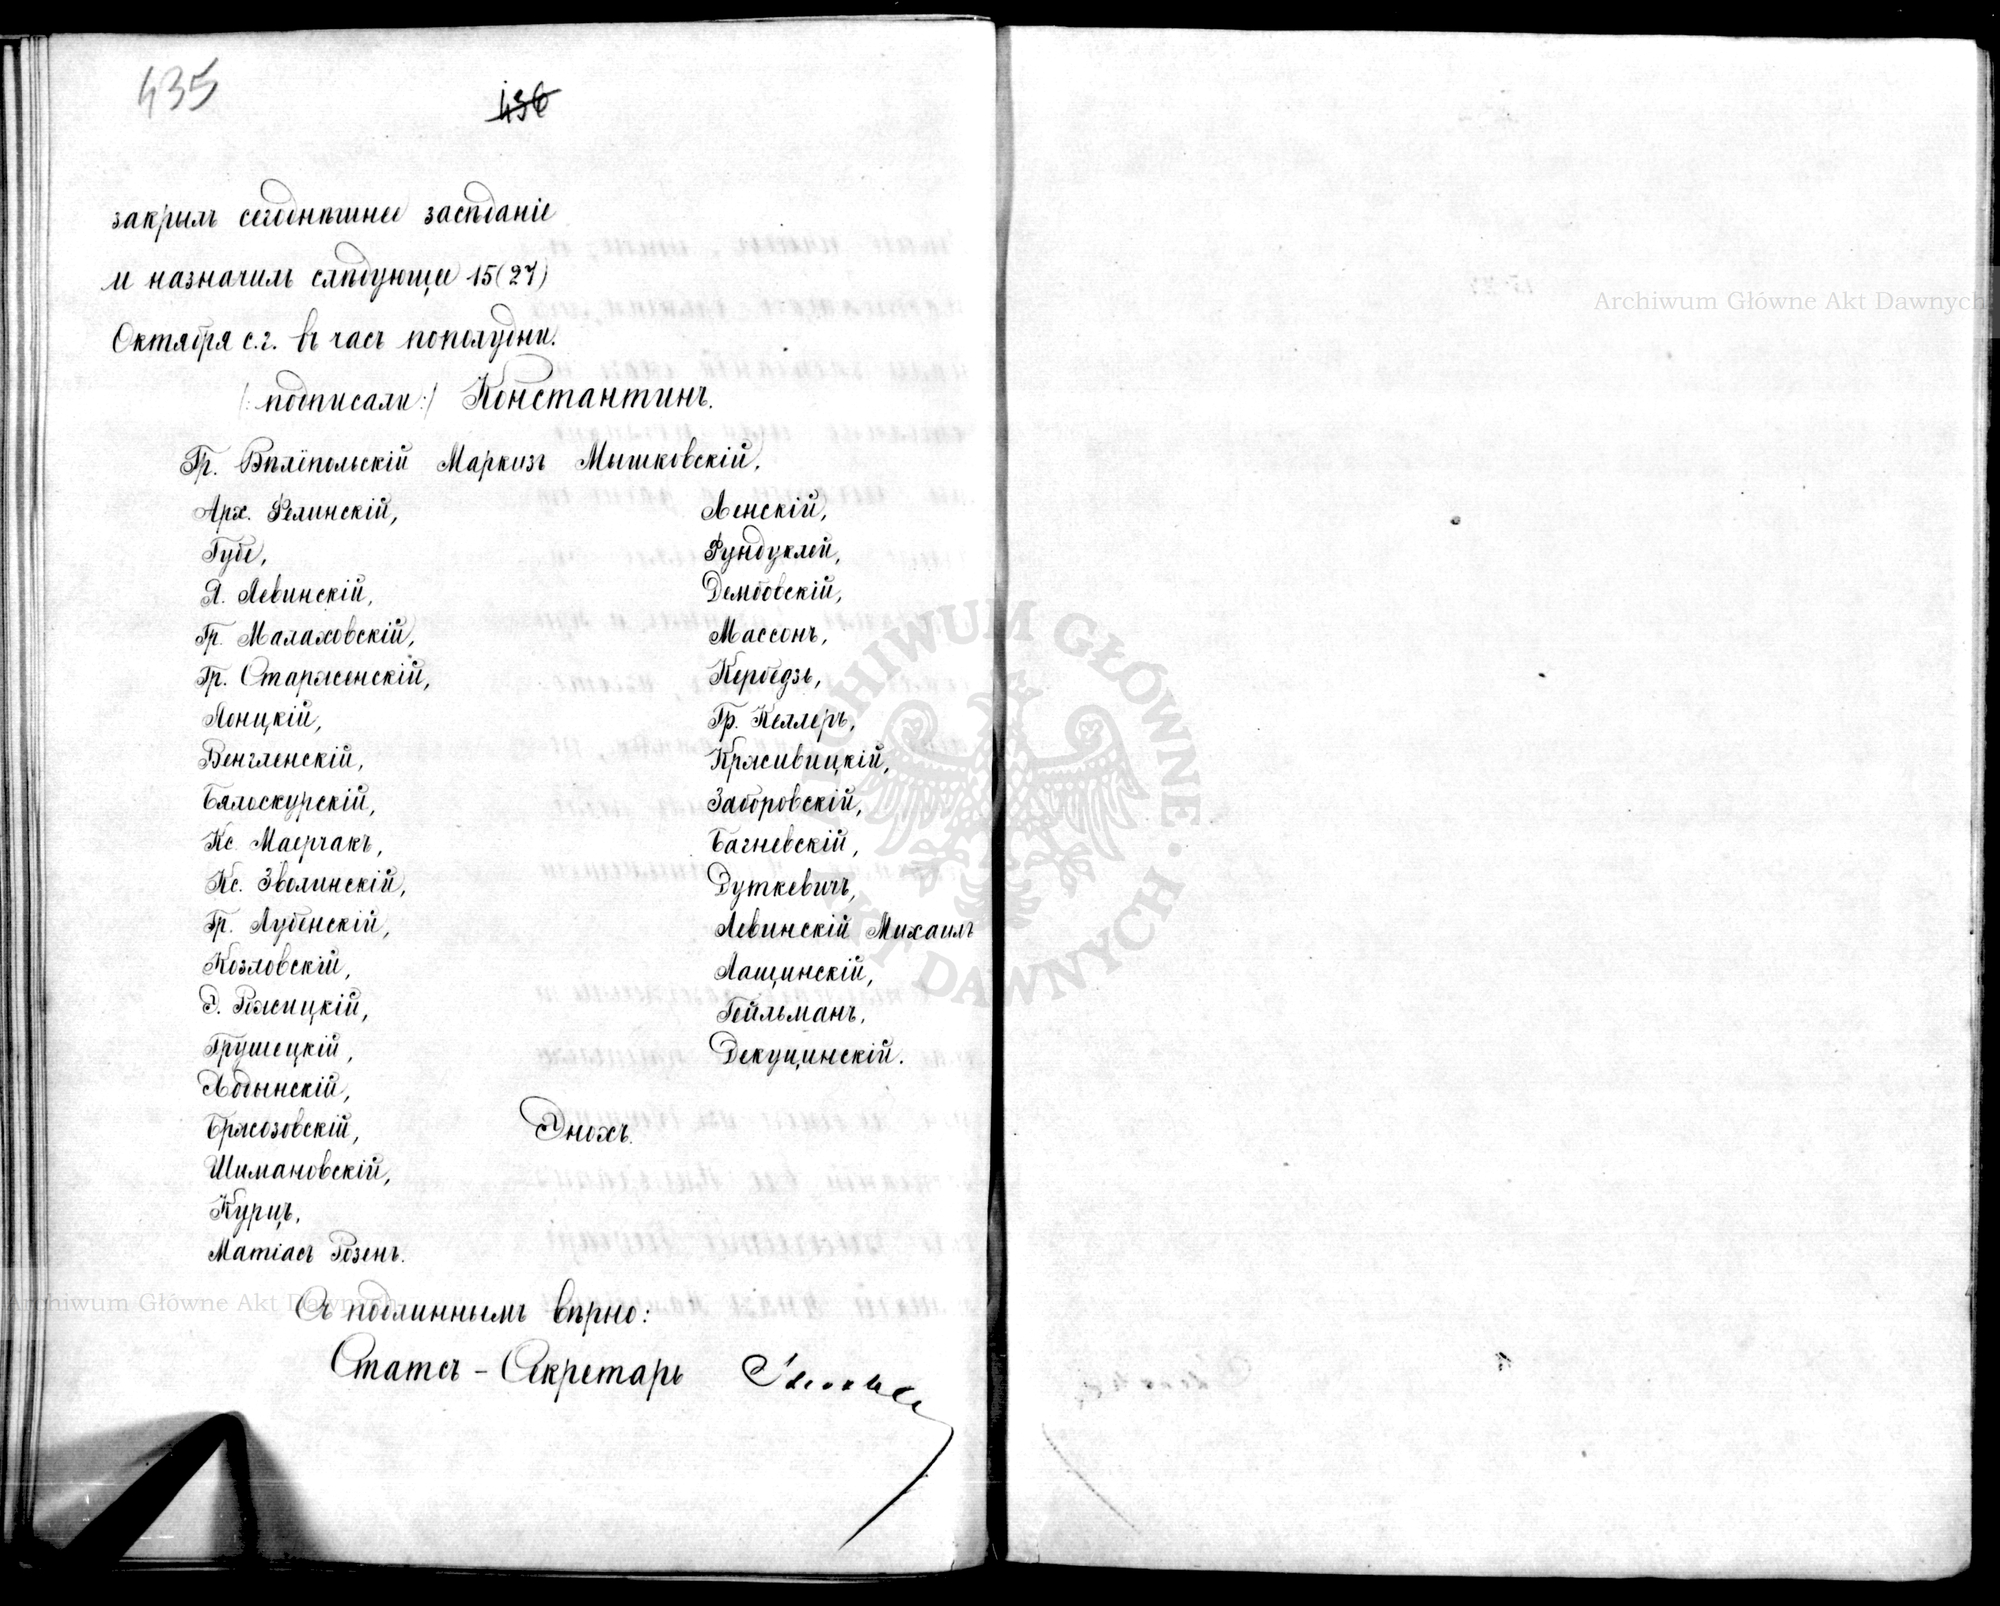 435
436
закрылъ сегоднѣшнее засѣданіе
и назначилъ слѣдующее 15(27)
Октября с.г. въ часъ пополудни.
(:подписали:) Константинъ.
Гр. Вѣлёпольскій Маркизъ Мышковскій.
Арх. Фелинскій,
Губе,
Я. Левинскій,
Гр. Малаховскій,
Гр. Старженскій,
Лонцкій,
Венгленскій,
Бялоскурскій,
Кс. Маерчакъ,
Кс. Зволинскій,
Гр. Лубенскій,
Козловскій,
Э. Ржсицкій,
Грушецкій,
Лобынскій,
Бржозовскій,
Шимановскій,
Курцъ,
Матіасъ Розенъ.
Ленскій,
Фундуклей,
Дембовскій,
Массонъ,
Кербедзъ,
Гр. Келлеръ,
Крживицкій,
Заборовскій,
Багневскій,
Дуткевичъ,
Левинскій Михаилъ
Лащинскій,
Гейльманъ,
Декуцинскій.
Энохъ.
Съ подлиннымъ вѣрно:
Статсъ-Секретарь
Archiwum Główne Akt Dawnych
Archiwum Główne Akt Dawnych
ARCHIWUM GŁÓWNE · AKT DAWNYCH ·